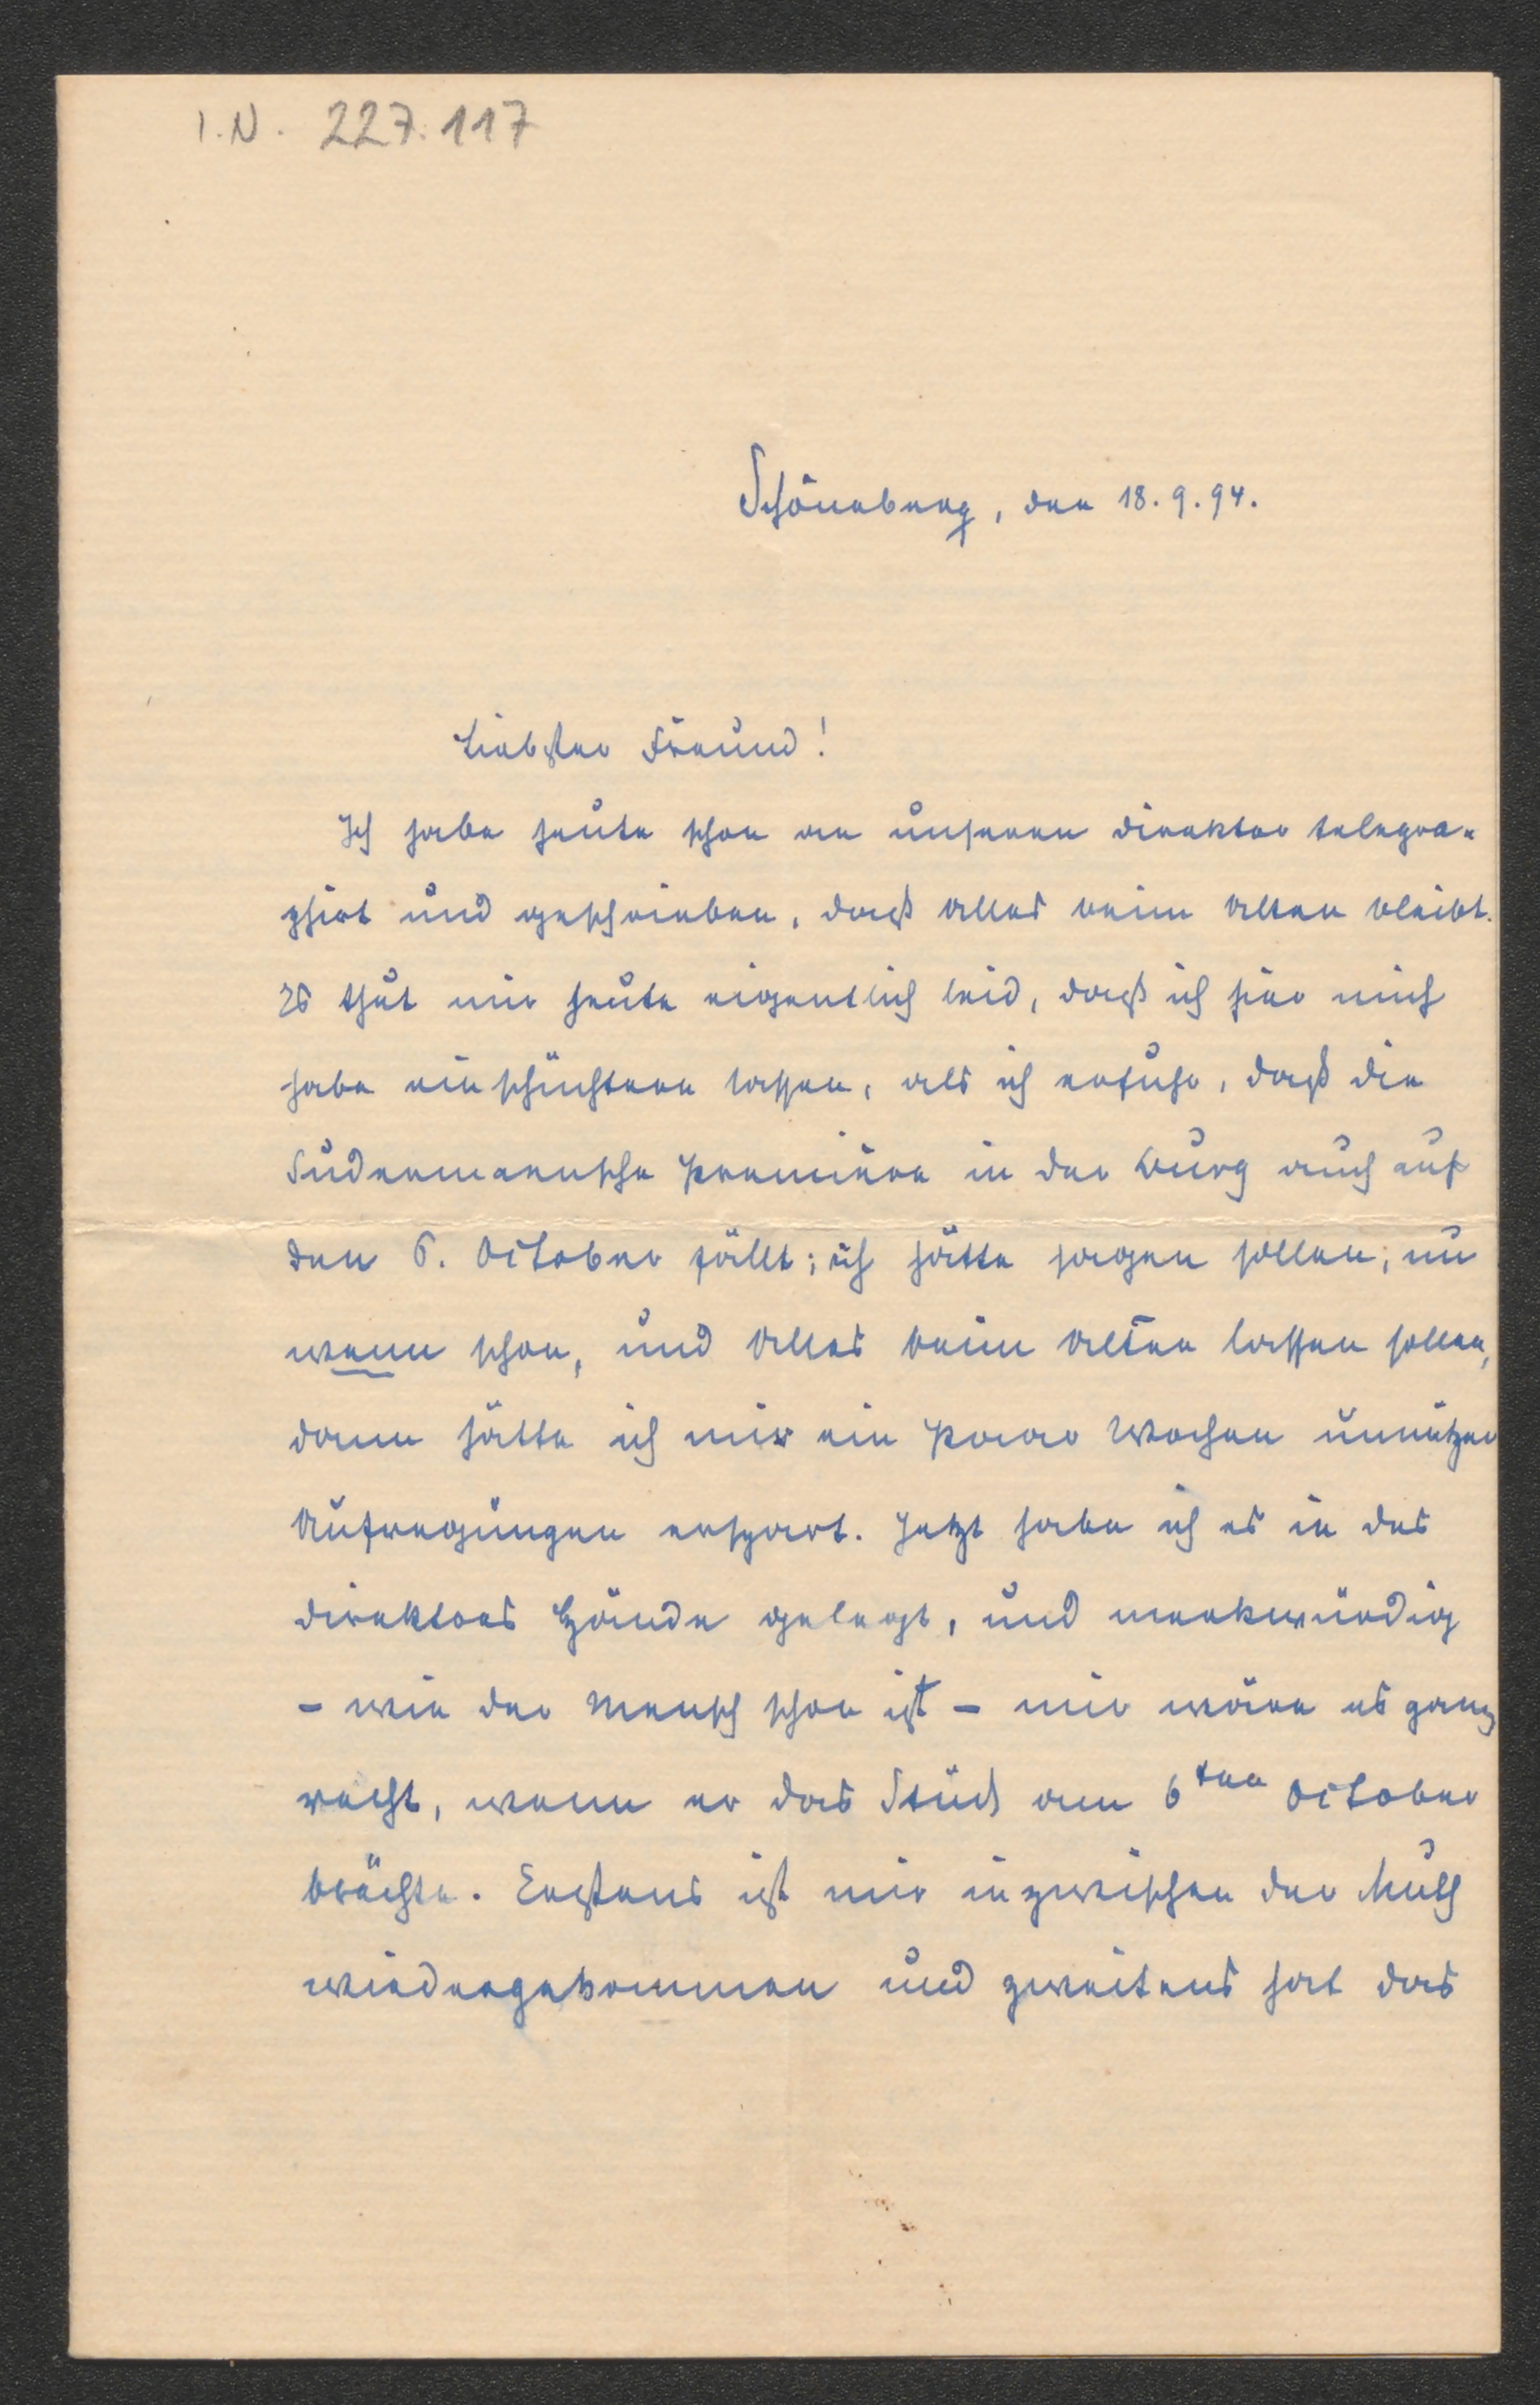 I.N. 227.117
Schöneberg, den 18.9.94.
Liebster Freund!
Ich habe heute schon an unseren Direktor telegra-
phirt und geschrieben, daß Alles beim Alten bleibt.
Es thut mir heute eigentlich leid, daß ich hier mich
habe einschüchtern lassen, als ich erfuhr, daß die
Sudermannsche Première in der Burg auch auf
den 6. October fällt; ich hätte sagen sollen; nu
wenn schon, und Alles beim Alten lassen sollen,
dann hätte ich mir ein Paar Wochen unnützer
Aufregungen erspart. Jetzt habe ich es in des
Direktors Hände gelegt, und merkwürdig
– wie der Mensch schon ist – mir wäre es ganz
recht, wenn er das Stück am 6ten October
brächte. Erstens ist mir inzwischen der Muth
wiedergekommen und zweitens hat das